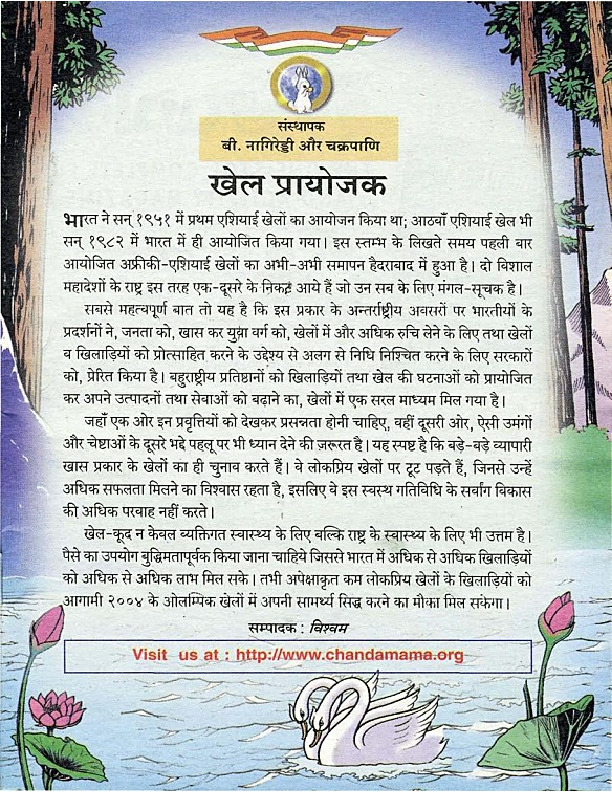 संस्थापक
बी. नागिरेड्डी और चक्रपाणि
खेल प्रायोजक
भारत ने सन् १९५१ में प्रथम एशियाई खेलों का आयोजन किया था; आठवाँ एशियाई खेल भी
सन् १९८२ में भारत में ही आयोजित किया गया। इस स्तम्भ के लिखते समय पहली बार
आयोजित अफ्रीकी-एशियाई खेलों का अभी-अभी समापन हैदराबाद में हुआ है। दो विशाल
महादेशों के राष्ट्र इस तरह एक-दूसरे के निकट आये हैं जो उन सब के लिए मंगल-सूचक है।
सबसे महत्वपूर्ण बात तो यह है कि इस प्रकार के अन्तर्राष्ट्रीय अवसरों पर भारतीयों के
प्रदर्शनों ने, जनता को, खास कर युवा वर्ग को, खेलों में और अधिक रुचि लेने के लिए तथा खेलों
व खिलाड़ियों को प्रोत्साहित करने के उद्देश्य से अलग से निधि निश्चित करने के लिए सरकारों
को, प्रेरित किया है। बहुराष्ट्रीय प्रतिष्ठानों को खिलाड़ियों तथा खेल की घटनाओं को प्रायोजित
कर अपने उत्पादनों तथा सेवाओं को बढ़ाने का, खेलों में एक सरल माध्यम मिल गया है।
जहाँ एक ओर इन प्रवृत्तियों को देखकर प्रसन्नता होनी चाहिए, वहीं दूसरी ओर, ऐसी उमंगों
और चेष्टाओं के दूसरे भद्दे पहलू पर भी ध्यान देने की ज़रूरत है। यह स्पष्ट है कि बड़े-बड़े व्यापारी
खास प्रकार के खेलों का ही चुनाव करते हैं। वे लोकप्रिय खेलों पर टूट पड़ते हैं, जिनसे उन्हें
अधिक सफलता मिलने का विश्वास रहता है, इसलिए वे इस स्वस्थ गतिविधि के सर्वांग विकास
की अधिक परवाह नहीं करते।
खेल-कूद न केवल व्यक्तिगत स्वास्थ्य के लिए बल्कि राष्ट्र के स्वास्थ्य के लिए भी उत्तम है।
पैसे का उपयोग बुद्धिमतापूर्वक किया जाना चाहिये जिससे भारत में अधिक से अधिक खिलाड़ियों
को अधिक से अधिक लाभ मिल सके। तभी अपेक्षाकृत कम लोकप्रिय खेलों के खिलाड़ियों को
आगामी २००४ के ओलम्पिक खेलों में अपनी सामर्थ्य सिद्ध करने का मौका मिल सकेगा।
सम्पादक : विश्वम
Visit us at : http://www.chandamama.org